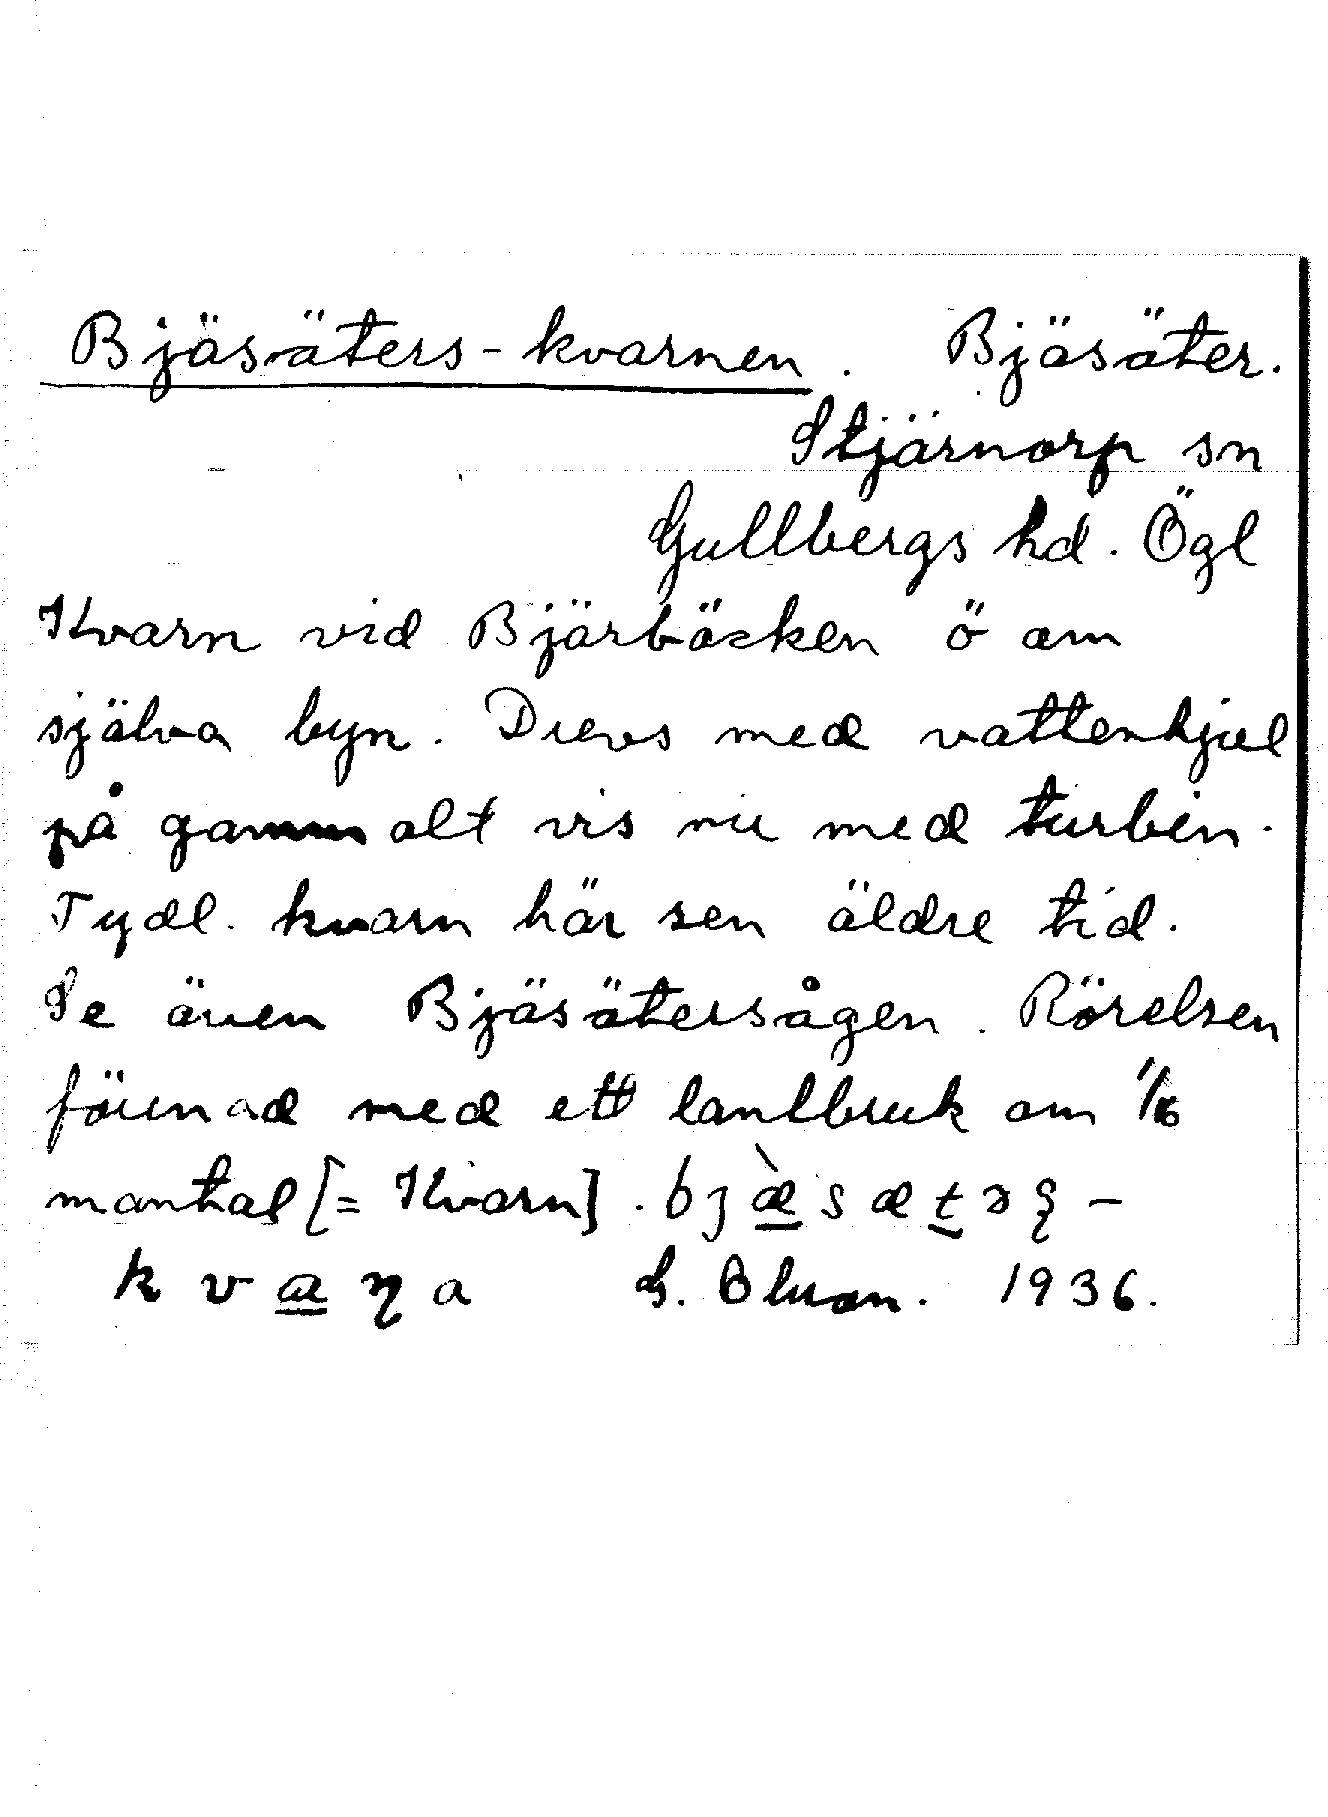 Bjäsäters-kvarnen. Bjäsäter.
Stjärnorp sn
Gullbergs hd. Ögl
Kvarn vid Bjärbäcken ö om
själva byn. Drevs med vattenhjul
på gammalt vis nu med turbin.
Tydl. kvarn här sen äldre tid.
Se även Bjäsätersågen. Rörelsen
förenad med ett lantbruk om 1/16
mantal [= Kvarn]. bjæ̀sætəʂ-
kvaɳa G. Bluom. 1936.